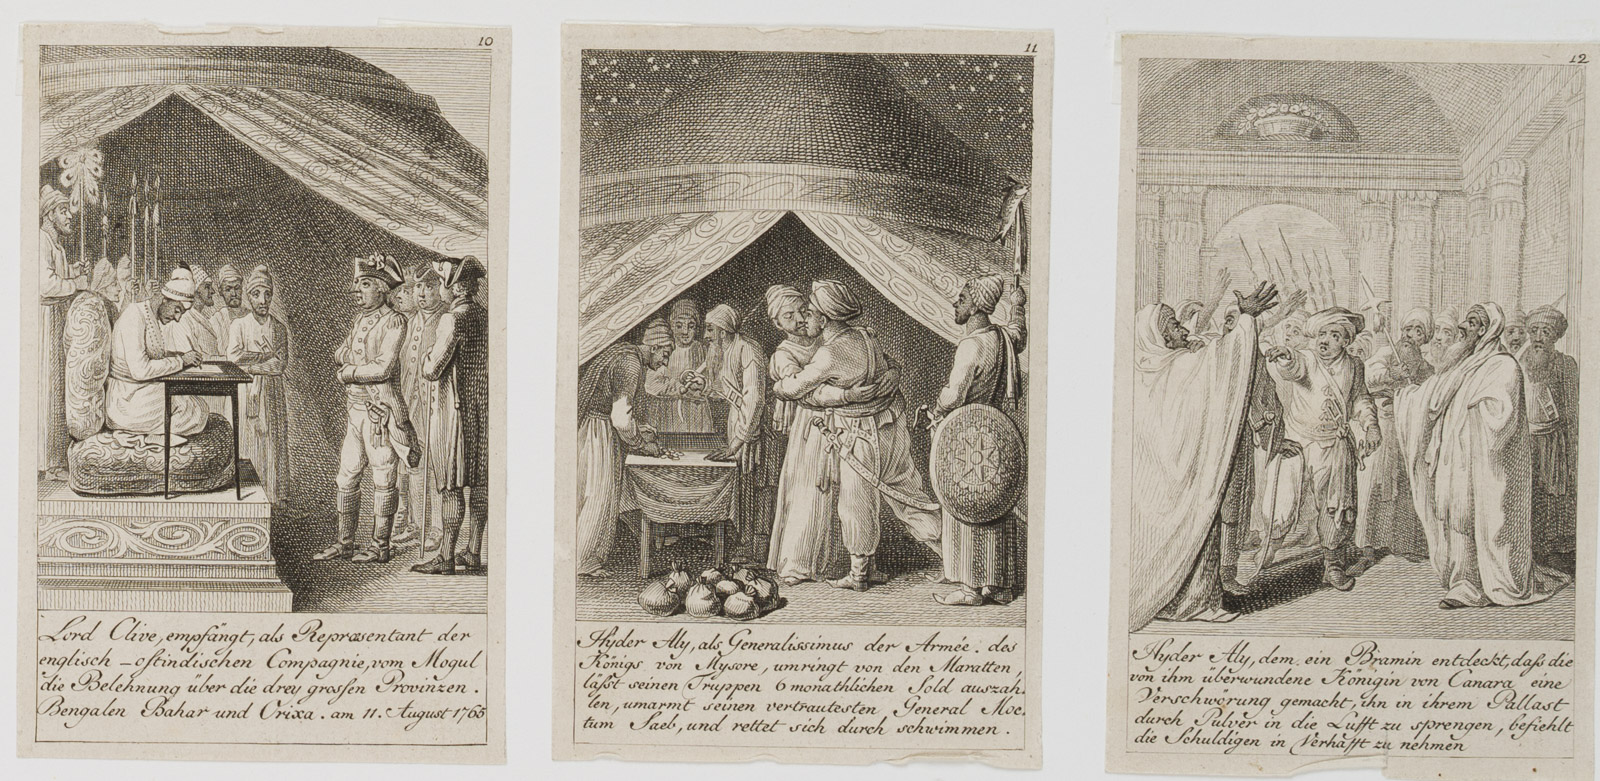 10
Lord Clive, empfängt, als Repræsentant der
englisch - ostindischen Compagnie, vom Mogul
die Belehnung über die drey grossen Provinzen.
Bengalen Bahar und Orixa. am 11. August 1765
11
Hyder Aly, als Generalissimus der Armée: des
Königs von Mysore, umringt von den Maratten,
läſst seinen Truppen 6 monathlichen Sold auszah-
len, umarmt seinen vertrautesten General Moc-
tum Saeb, und rettet sich durch schwimmen.
12
Hyder Aly, dem ein Bramin entdeckt, daſs die
von ihm überwundene Königin von Canara eine
Verschwörung gemacht, ihn in ihrem Pallast
durch Pulver in die Lufft zu sprengen, befiehlt
die Schuldigen in Verhafft zu nehmen